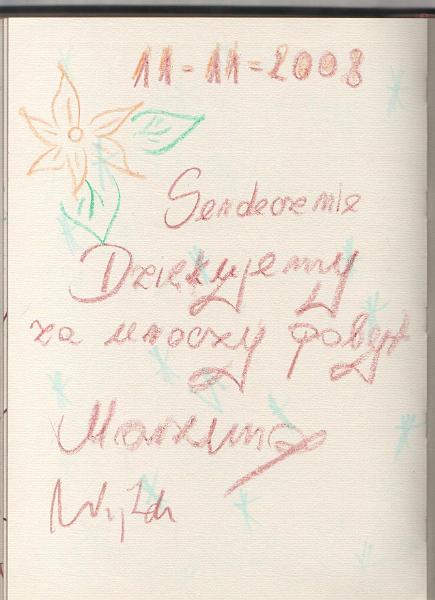 11-11-2008
Serdecznie
Dziękujemy
za uroczy pobyt